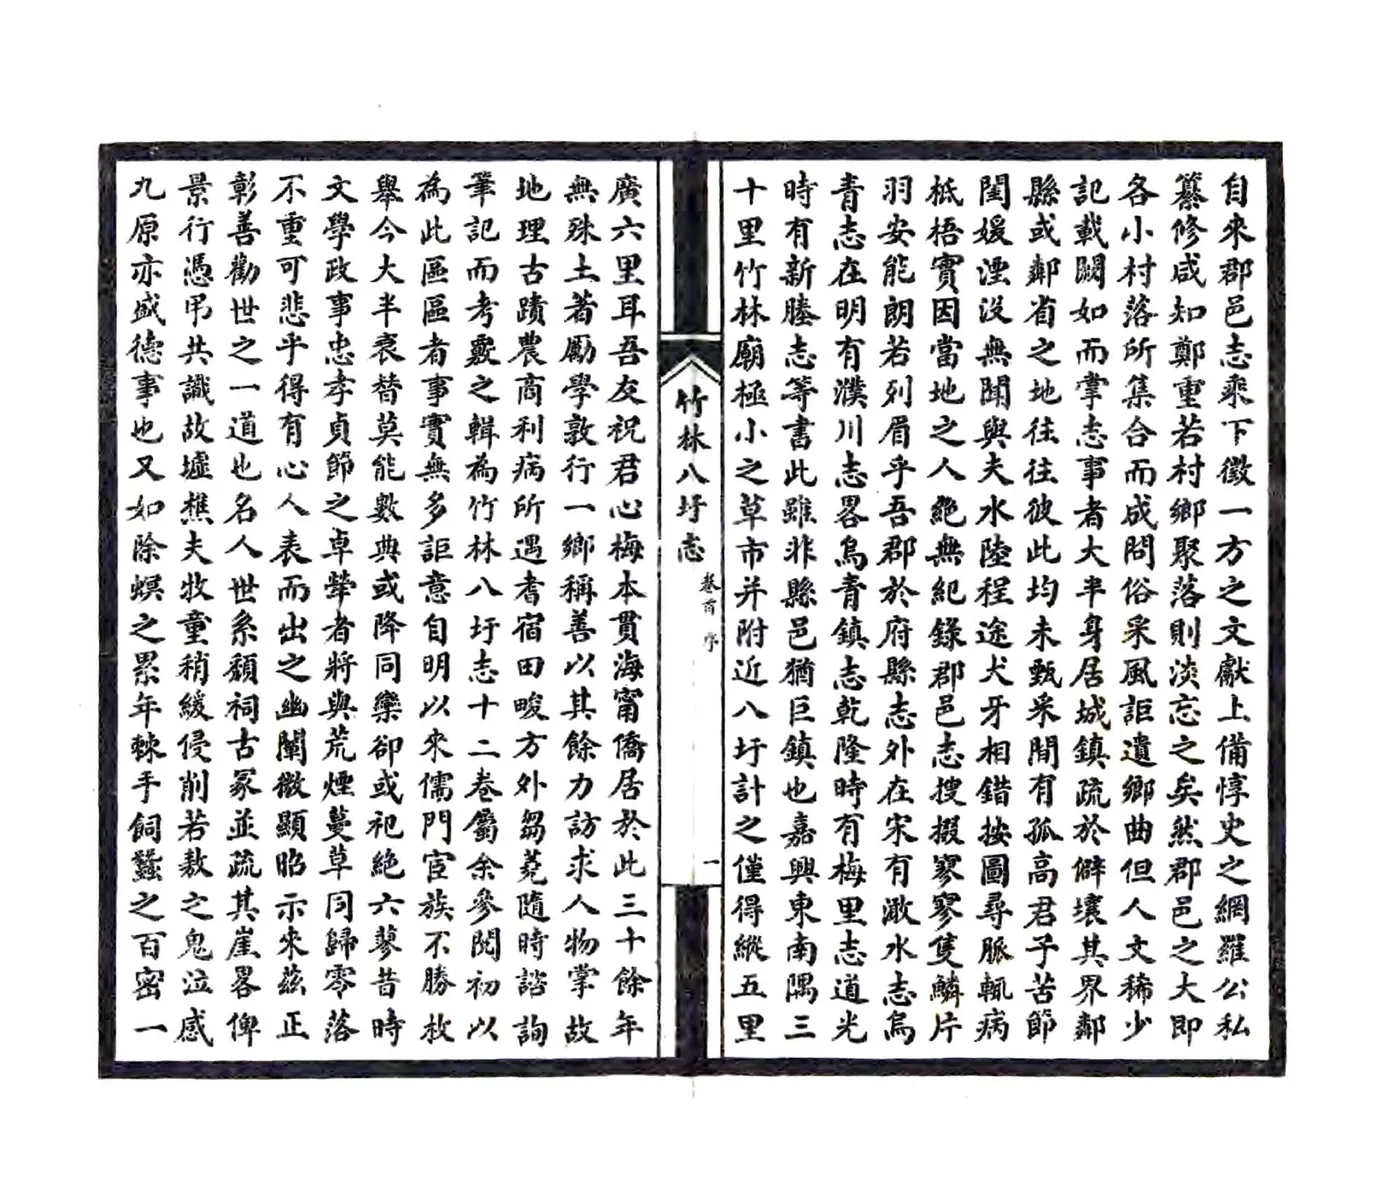 自來郡邑志乘下徵一方之文獻上備惇史之網羅公私
纂修咸知鄭重若村鄉聚落則淡忘之矣然郡邑之大即
各小村落所集合而成問俗采風詎遺鄉曲但人文稀少
記載闕如而掌志事者大半身居城鎮疏於僻壤其界鄰
縣或鄰省之地往往彼此均未甄采間有孤高君子苦節
閨媛湮沒無聞與夫水陸程途犬牙相錯按圖尋脈輒病
柢梧實因當地之人絶無紀錄郡邑志搜掇寥寥隻鱗片
羽安能朗若列眉乎吾郡於府縣志外在宋有澉水志烏
青志在明有濮川志畧烏青鎮志乾隆時有梅里志道光
時有新塍志等書此雖非縣邑猶巨鎮也嘉興東南隅三
十里竹林廟極小之草市并附近八圩計之僅得縱五里
竹林八圩志
卷首 序
一
廣六里耳吾友祝君心梅本貫海甯僑居於此三十餘年
無殊土著勵學敦行一鄉稱善以其餘力訪求人物掌故
地理古蹟農商利病所遇耆宿田畯方外芻蕘隨時諮詢
筆記而考覈之輯為竹林八圩志十二卷屬余參閱初以
為此區區者事實無多詎意自明以來儒門宦族不勝枚
舉今大半衰替莫能數典或降同欒卻或祀絶六蓼昔時
文學政事忠孝貞節之卓犖者將與荒煙蔓草同歸零落
不重可悲乎得有心人表而出之幽闡微顯昭示來茲正
彰善勸世之一道也名人世系頹祠古冢並疏其崖畧俾
景行憑弔共識故墟樵夫牧童稍緩侵削若敖之鬼泣感
九原亦盛德事也又如除螟之累年棘手飼蠶之百密一